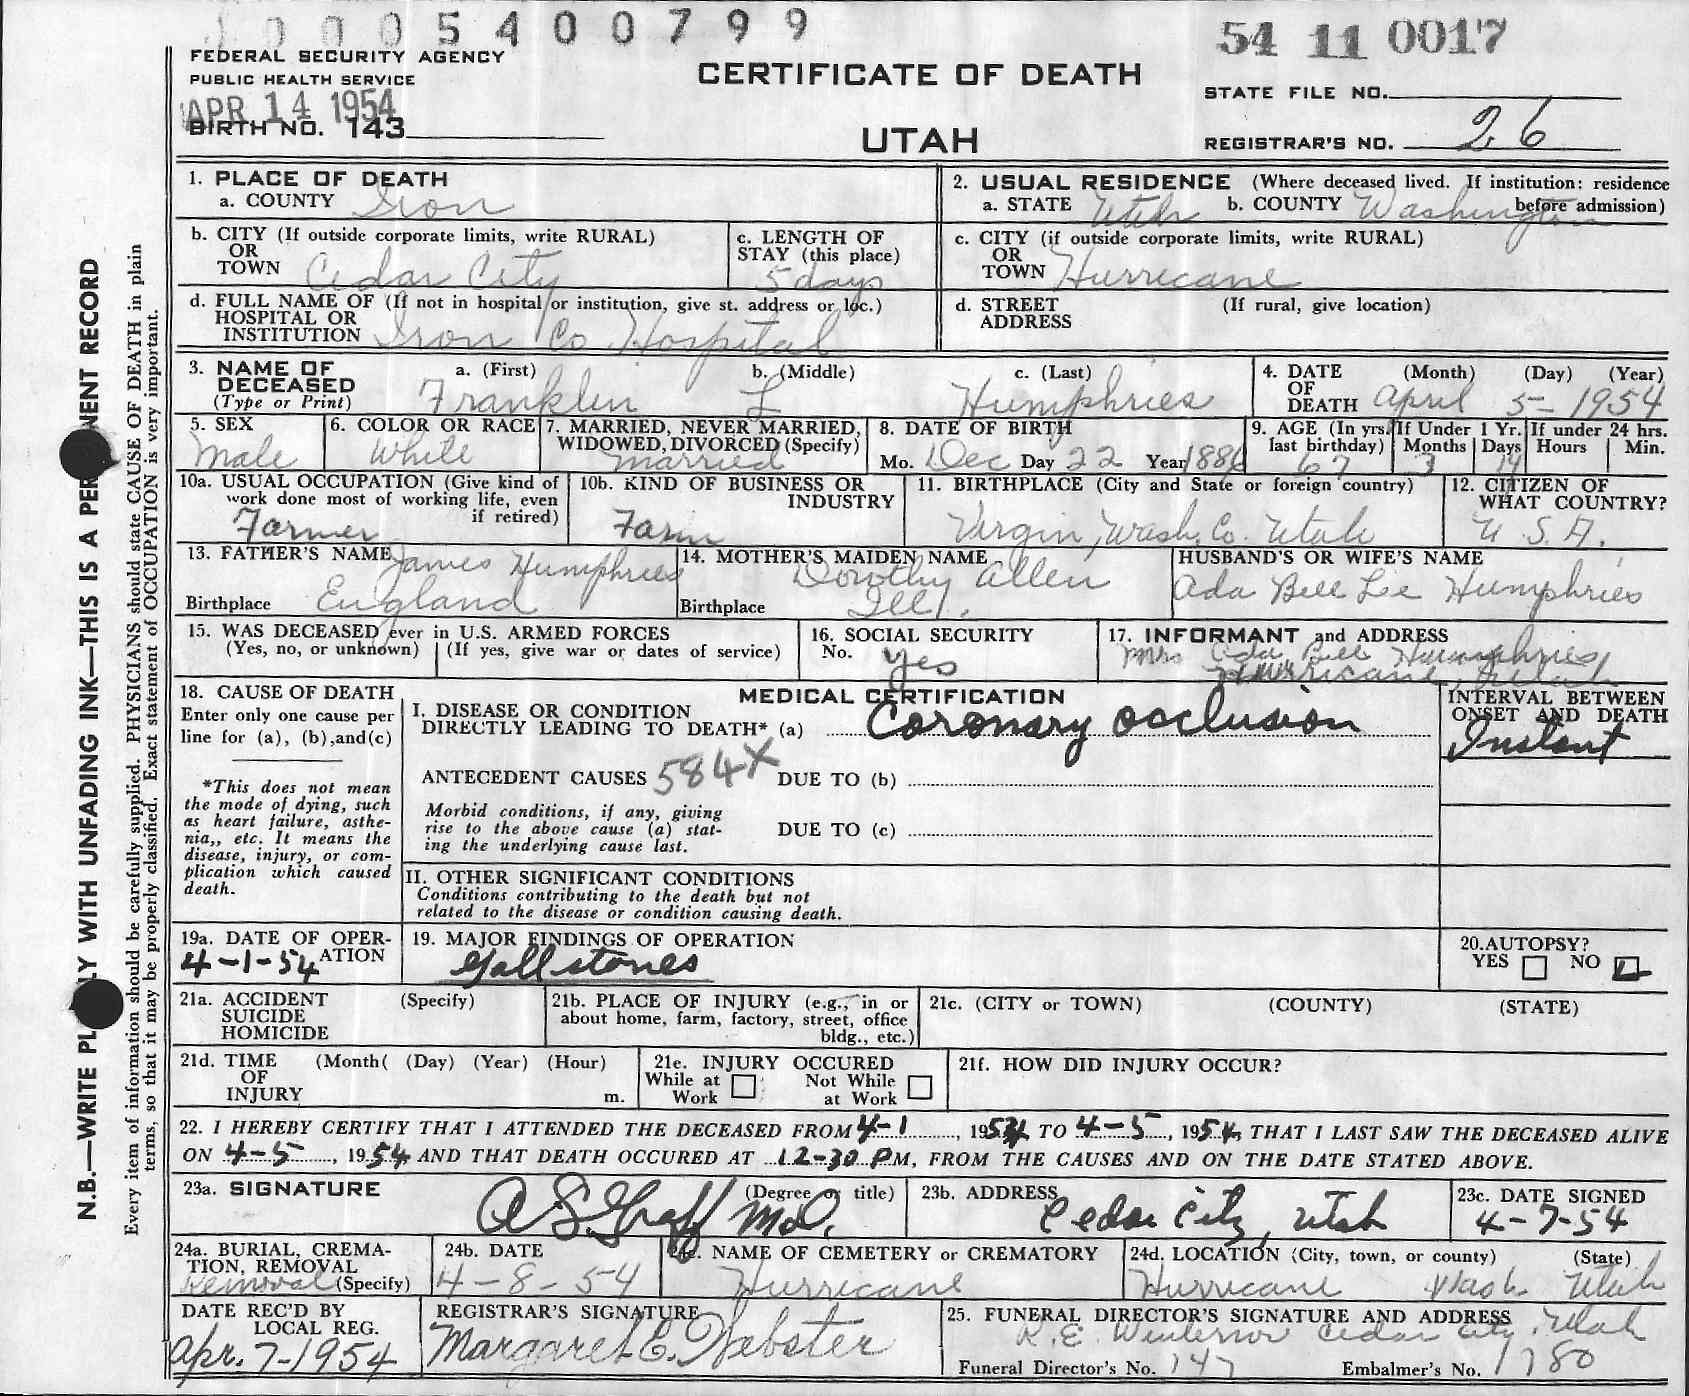 0005400799
54 11 0017
FEDERAL SECURITY AGENCY
PUBLIC HEALTH SERVICE
APR 14 1954
BIRTH NO. 143
CERTIFICATE OF DEATH
UTAH
STATE FILE NO.
REGISTRAR'S NO. 26
N.B.—WRITE PLAINLY WITH UNFADING INK—THIS IS A PERMANENT RECORD
Every item of information should be carefully supplied. PHYSICIANS should state CAUSE OF DEATH in plain
terms, so that it may be properly classified. Exact statement of OCCUPATION is very important.
1. PLACE OF DEATH
a. COUNTY Iron
2. USUAL RESIDENCE (Where deceased lived. If institution: residence
before admission)
a. STATE Utah b. COUNTY Washington
b. CITY (If outside corporate limits, write RURAL)
OR
TOWN Cedar City
c. LENGTH OF
STAY (this place)
5 days
c. CITY (if outside corporate limits, write RURAL)
OR
TOWN Hurricane
d. FULL NAME OF (If not in hospital or institution, give st. address or loc.)
HOSPITAL OR
INSTITUTION Iron Co Hospital
d. STREET (If rural, give location)
ADDRESS
3. NAME OF DECEASED (Type or Print)
a. (First) b. (Middle) c. (Last)
Franklin L Humphries
4. DATE OF DEATH (Month) (Day) (Year)
April 5- 1954
5. SEX
Male
6. COLOR OR RACE
White
7. MARRIED, NEVER MARRIED,
WIDOWED, DIVORCED (Specify)
married
8. DATE OF BIRTH
Mo. Dec Day 22 Year 1886
9. AGE (In yrs. last birthday) 67
If Under 1 Yr. Months 3 Days 14
If under 24 hrs. Hours Min.
10a. USUAL OCCUPATION (Give kind of
work done most of working life, even
if retired)
Farmer
10b. KIND OF BUSINESS OR
INDUSTRY
Farm
11. BIRTHPLACE (City and State or foreign country)
Virgin, Wash. Co. Utah
12. CITIZEN OF
WHAT COUNTRY?
U. S. A.
13. FATHER'S NAME James Humphries
Birthplace England
14. MOTHER'S MAIDEN NAME
Dorothy Allen
Birthplace Ill.
HUSBAND'S OR WIFE'S NAME
Ada Bell Lee Humphries
15. WAS DECEASED ever in U.S. ARMED FORCES
(Yes, no, or unknown) (If yes, give war or dates of service)
16. SOCIAL SECURITY
No. yes
17. INFORMANT and ADDRESS
Mrs Ada Bell Humphries
Hurricane, Utah
18. CAUSE OF DEATH
Enter only one cause per
line for (a), (b),and(c)
*This does not mean
the mode of dying, such
as heart failure, asthe-
nia,, etc. It means the
disease, injury, or com-
plication which caused
death.
MEDICAL CERTIFICATION
I. DISEASE OR CONDITION
DIRECTLY LEADING TO DEATH* (a) Coronary occlusion
INTERVAL BETWEEN
ONSET AND DEATH
Instant
ANTECEDENT CAUSES 584X DUE TO (b)
Morbid conditions, if any, giving
rise to the above cause (a) stat-
ing the underlying cause last.
DUE TO (c)
II. OTHER SIGNIFICANT CONDITIONS
Conditions contributing to the death but not
related to the disease or condition causing death.
19a. DATE OF OPER-
ATION
4-1-54
19. MAJOR FINDINGS OF OPERATION
Gallstones
20.AUTOPSY?
YES NO
21a. ACCIDENT (Specify)
SUICIDE
HOMICIDE
21b. PLACE OF INJURY (e.g., in or
about home, farm, factory, street, office
bldg., etc.)
21c. (CITY or TOWN) (COUNTY) (STATE)
21d. TIME (Month( (Day) (Year) (Hour)
OF
INJURY m.
21e. INJURY OCCURED
While at Work Not While at Work
21f. HOW DID INJURY OCCUR?
22. I HEREBY CERTIFY THAT I ATTENDED THE DECEASED FROM 4-1, 1954 TO 4-5, 1954, THAT I LAST SAW THE DECEASED ALIVE
ON 4-5, 1954 AND THAT DEATH OCCURED AT 12-30 PM, FROM THE CAUSES AND ON THE DATE STATED ABOVE.
23a. SIGNATURE (Degree or title)
A S Graff MD.
23b. ADDRESS
Cedar City, Utah
23c. DATE SIGNED
4-7-54
24a. BURIAL, CREMA-
TION, REMOVAL
Removal (Specify)
24b. DATE
4-8-54
24c. NAME OF CEMETERY or CREMATORY
Hurricane
24d. LOCATION (City, town, or county) (State)
Hurricane Wash. Utah
DATE REC'D BY
LOCAL REG.
Apr. 7-1954
REGISTRAR'S SIGNATURE
Margaret C. Webster
25. FUNERAL DIRECTOR'S SIGNATURE AND ADDRESS
Cedar City, Utah
Funeral Director's No. 147 Embalmer's No. 1780